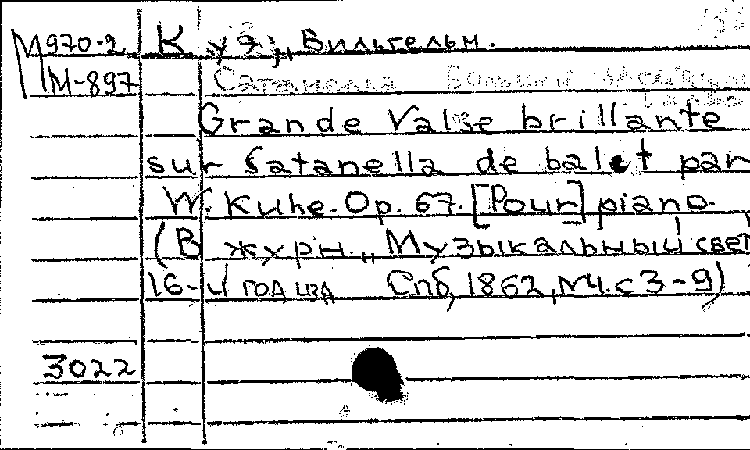 М970-2 Куэ, Вильгельм.
М-897 Сатанелла Большой
Grande Valse brillante
sur Satanella de balet par
W. Kuhe. Op. 67. [Pour] piano.
(В журн. „Музыкальный свет
16-й год изд Спб, 1862, №4. с 3-9)
3022